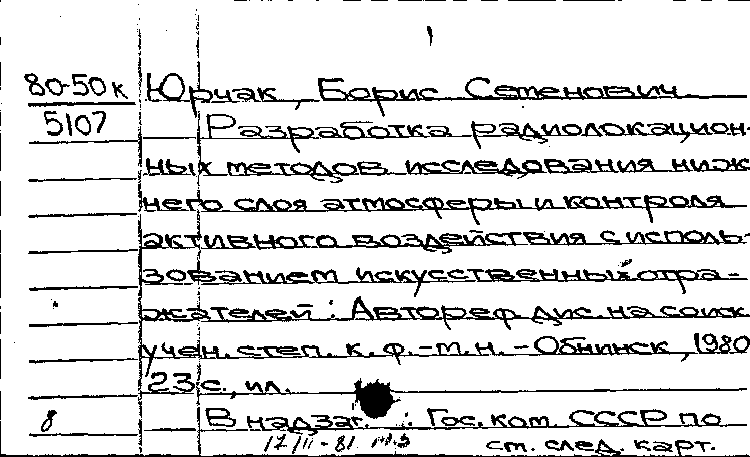 1
80-50к Юрчак, Борис Семенович.
5107 Разработка радиолокацион-
ных методов исследования ниж
него слоя атмосферы и контроля
активного воздействия с исполь-
зованием искусственных отра-
жателей : Автореф дис. на соиск
учен. степ. к. ф.-т. н. - Обнинск, 1980
23 с., ил.
8 В надзаг. : Гос. ком. СССР по
17/II-81 см. след. карт.